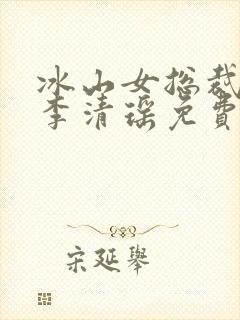 冰山女总裁
李清瑶免费
宋延舉